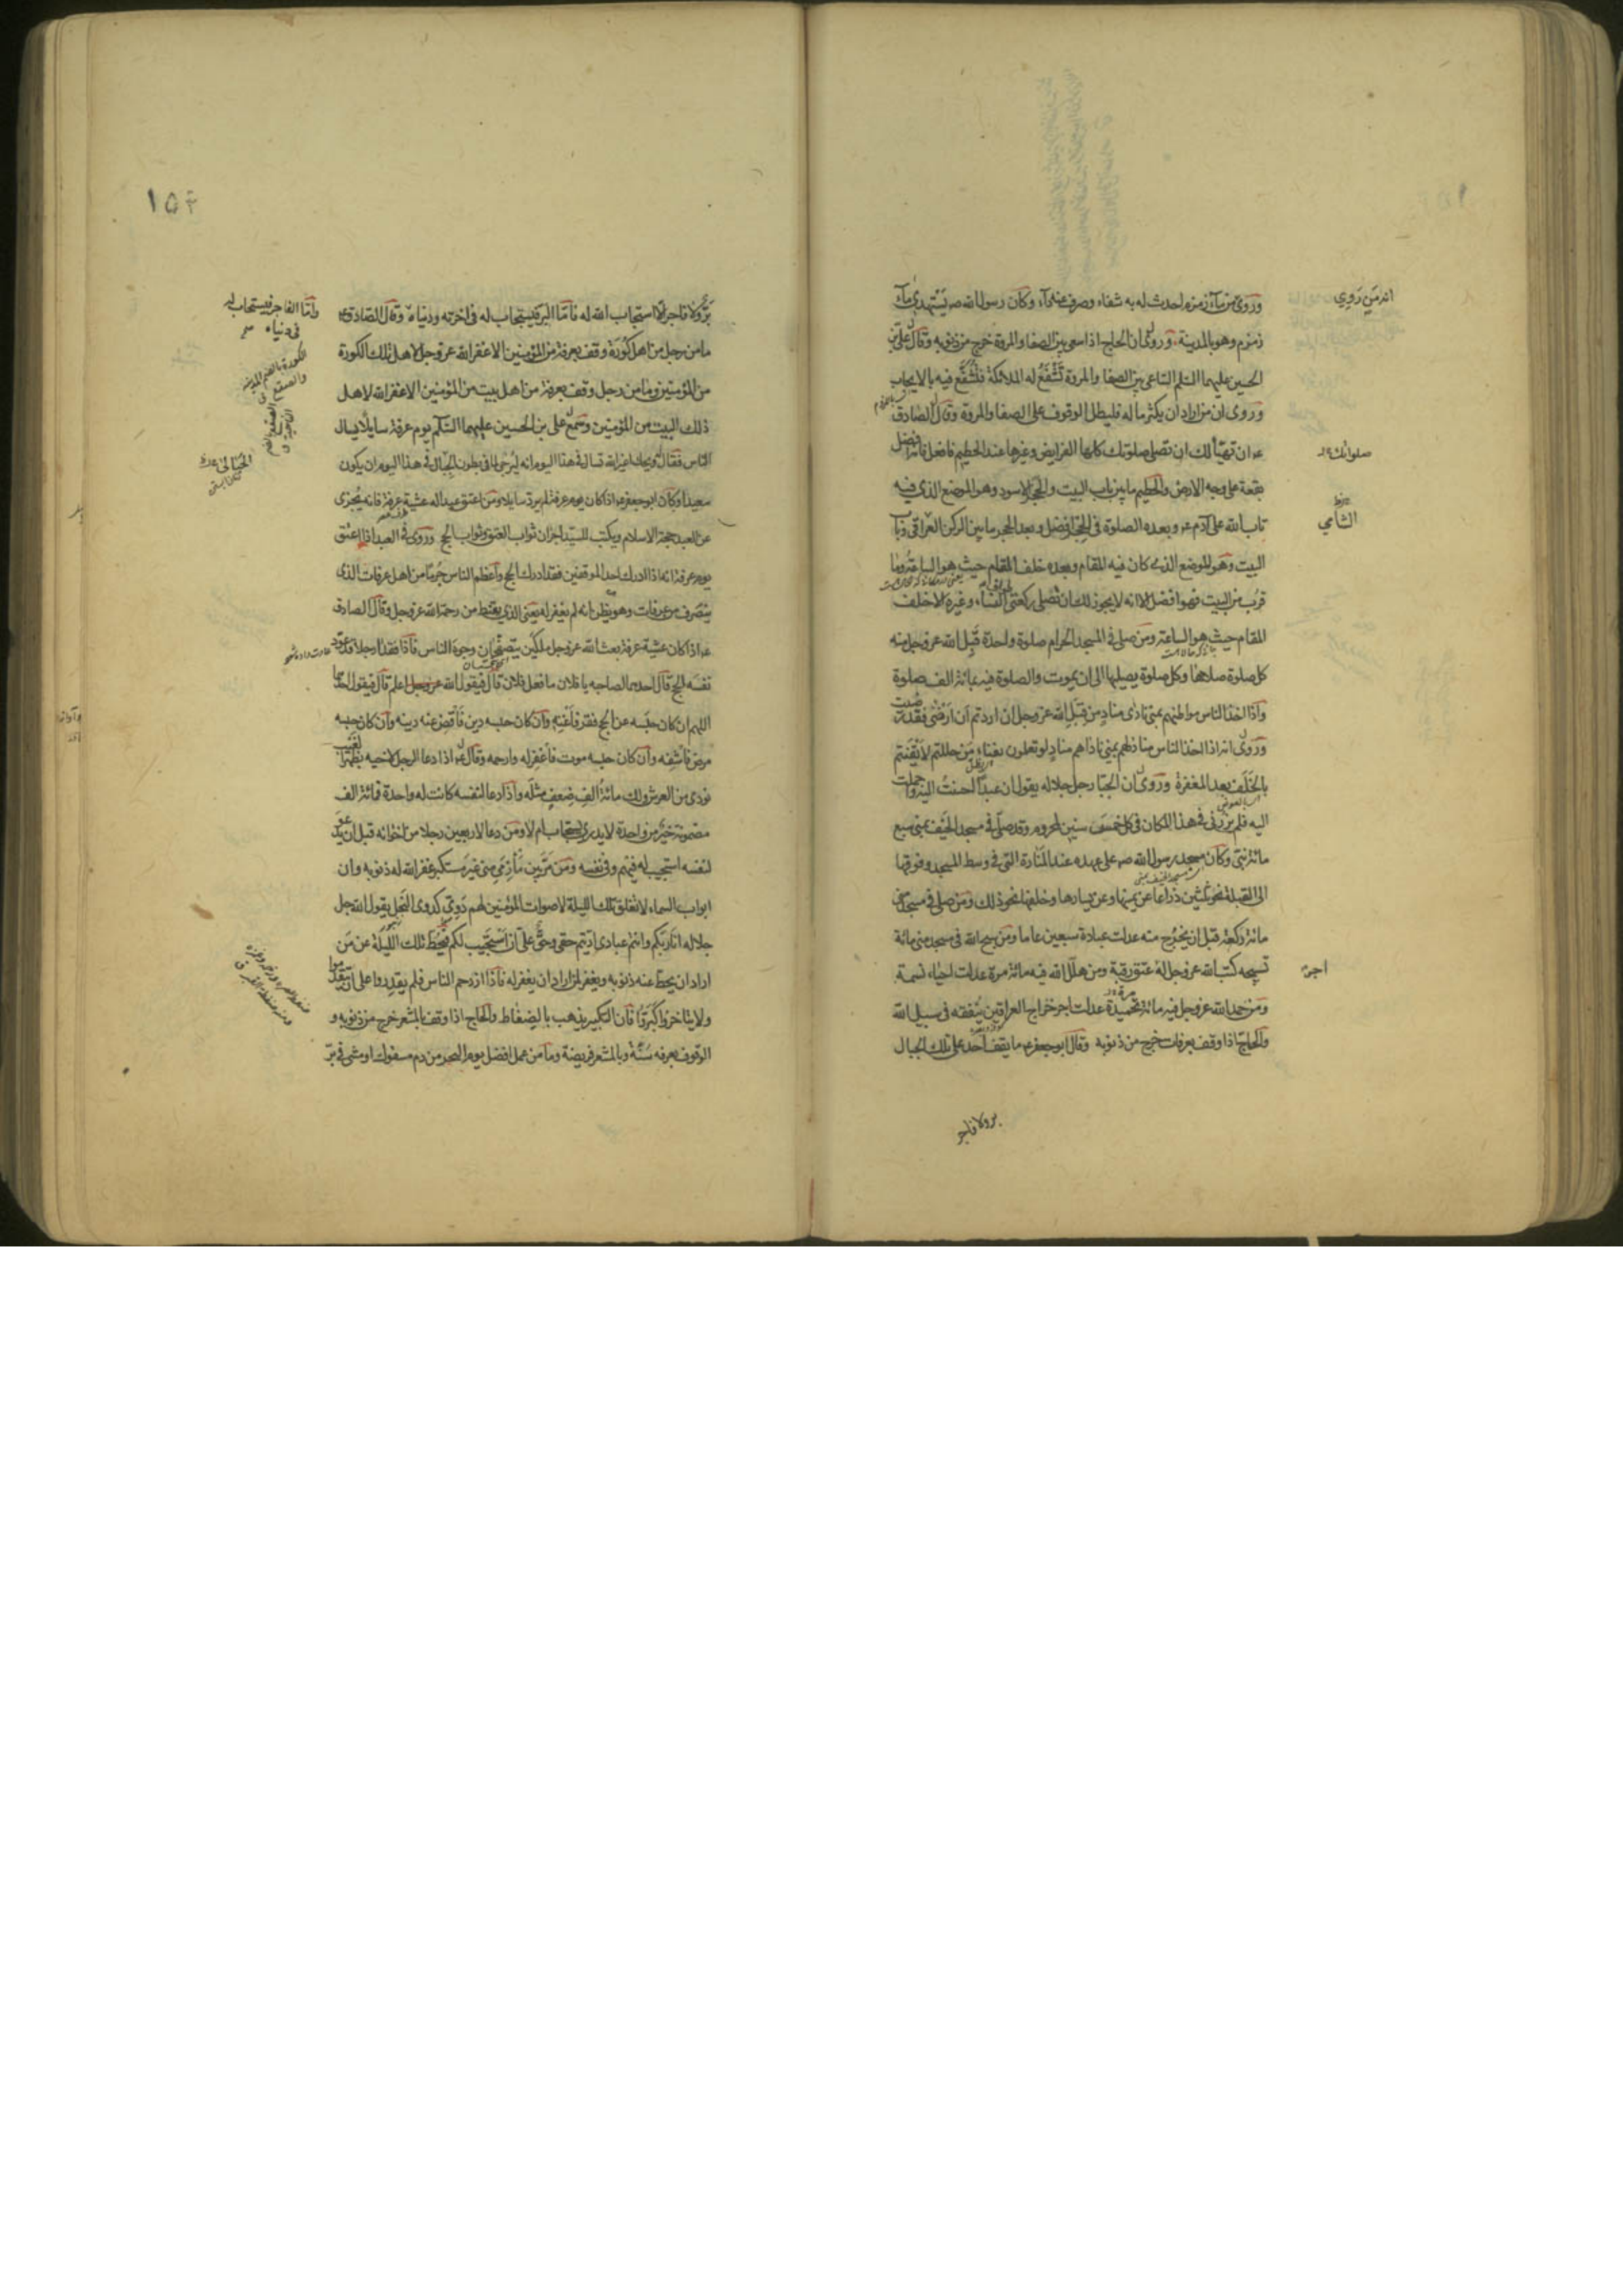 وروى من ماء زمزم احدث له به شفاء وصرف عنه داء وكان رسول الله صه يستهدي ماء
زمزم وهو بالمدينة وروى ان الحاج اذا سعى بين الصفا والمروة خرج من ذنوبه وقال على بن
الحسين عليهما السلم الساعي بين الصفا والمروة تشفع له الملائكة فتشفع فيه بالايجاب
وروى ان من اراد ان يكثر ماله فليطل الوقوف على الصفا والمروة وقال الصادق
ع ان تهيأ لك ان تصلى صلوتك كلها الفرايض وغيرها عند الحطيم فافعل فانه افضل
بقعة على وجه الارض والحطيم ما بين باب البيت والحجر الاسود وهو الموضع الذي فيه
تاب الله على آدم ع وبعده الصلوة في الحجر افضل وبعد الحجر ما بين الركن العراقي وباب
البيت وهو الموضع الذي كان فيه المقام وبعده خلف المقام حيث هو الساعة وما
قرب من البيت فهو افضل الا انه لا يجوز لك ان تصلى ركعتى طواف النساء وغيره الا خلف
المقام حيث هو الساعة ومن صلى في المسجد الحرام صلوة واحدة قبل الله عز وجل منه
كل صلوة صلاها وكل صلوة يصليها الى ان يموت والصلوة فيه بمائة الف صلوة
واذا اخذ الناس مواطنهم بمنى نادى مناد من قبل الله عز وجل ان اردتم ان ارضى فقد رضيت
وروى انه اذا اخذ الناس منازلهم بمنى ناداهم مناد لو تعلمون بفناء من حللتم لايقنتم
بالخلف بعد المغفرة وروى ان الجبار جل جلاله يقول ان عبدا احسنت اليه واجملت
اليه فلم يزرنى في هذا المكان في كل خمس سنين لمحروم وقد صلى في مسجد الخيف بمنى سبع
مائة نبى وكان مسجد رسول الله صه على عهده عند المنارة التي في وسط المسجد وفوقها
الى القبلة نحو ثلثين ذراعا عن يمينها وعن يسارها وخلفها نحو ذلك ومن صلى في مسجد منى
مائة ركعة قبل ان يخرج منه عدلت عبادة سبعين عاما ومن سبح الله في مسجد منى مائة
تسبيحه كتب الله عز وجل له عتق رقبة ومن هلل الله فيه مائة مرة عدلت احياء نسمة
ومن حمد الله عز وجل فيه مائة تحميدة عدلت اجر خراج العراقين ينفقه في سبيل الله
والحاج اذا وقف بعرفات خرج من ذنوبه وقال ابو جعفر ع ما يقف احد على تلك الجبال
بر ولا فاجر
صلواتك
الشامي
اجر
١٥٢
بر ولا فاجر الا استجاب الله له فاما البر فيستجاب له في اخرته ودنياه وقال الصادق ع
ما من رجل من اهل كورة وقف بعرفة من المؤمنين الا غفر الله عز وجل لاهل تلك الكورة
من المؤمنين وما من رجل وقف بعرفة من اهل بيت من المؤمنين الا غفر الله لاهل
ذلك البيت من المؤمنين وسمع على بن الحسين عليهما السلم يوم عرفة سايلا يسال
الناس فقال له ويحك اغير الله تسال في هذا اليوم انه ليرجى لما في بطون الجبال في هذا اليوم ان يكون
سعيدا وكان ابو جعفر ع اذا كان يوم عرفة لم يرد سايلا ومن اعتق عبدا له عشية عرفة فانه يجزى
عن العبد حجة الاسلام ويكتب للسيد اجران ثواب العتق وثواب الحج وروى في العبد اذا اعتق
يوم عرفة انه اذا ادرك احد الموقفين فقد ادرك الحج واعظم الناس جرما من اهل عرفات الذى
ينصرف من عرفات وهو يظن انه لم يغفر له يعنى الذي يقنط من رحمة الله عز وجل وقال الصادق
ع اذا كان عشية عرفة بعث الله عز وجل ملكين يتصفحان وجوه الناس فاذا فقدا رجلا قد عود
نفسه الحج قال احدهما لصاحبه يا فلان ما فعل فلان قال فيقول الله عز وجل اعلم قال فيقول احدهما
اللهم ان كان حبسه عن الحج فقر فاغنه وان كان حبسه دين فاقض عنه دينه وان كان حبسه
مرض فاشفه وان كان حبسه موت فاغفر له وارحمه وقال ع اذا دعا الرجل لاخيه بظهر الغيب
نودى من العرش ولك مائة الف ضعف مثله واذا دعا لنفسه كانت له واحدة فمائة الف
مضمونة خير من واحدة لا يدرى يستجاب ام لا ومن دعا لاربعين رجلا من اخوانه قبل ان يدعو
لنفسه استجيب له فيهم وفي نفسه ومن مر بين مازمى منى غير مستكبر غفر الله له ذنوبه وان
ابواب السماء لا تغلق تلك الليلة لاصوات المؤمنين لهم دوى كدوى النحل يقول الله جل
جلاله انا ربكم وانتم عبادى اديتم حقى وحق على ان استجيب لكم فيحط تلك الليلة عن من
اراد ان يحط عنه ذنوبه ويغفر لمن اراد ان يغفر له فاذا ازدحم الناس فلم يقدروا على ان يتقدموا
ولا يتاخروا كبروا فان التكبير يذهب بالضغاط والحاج اذا وقف بالمشعر خرج من ذنوبه و
الوقوف بعرفه سنة وبالمشعر فريضة وما من عمل افضل يوم النحر من دم مسفوك او مشى في بر
واما الفاجر فيستجاب له
في دنياه